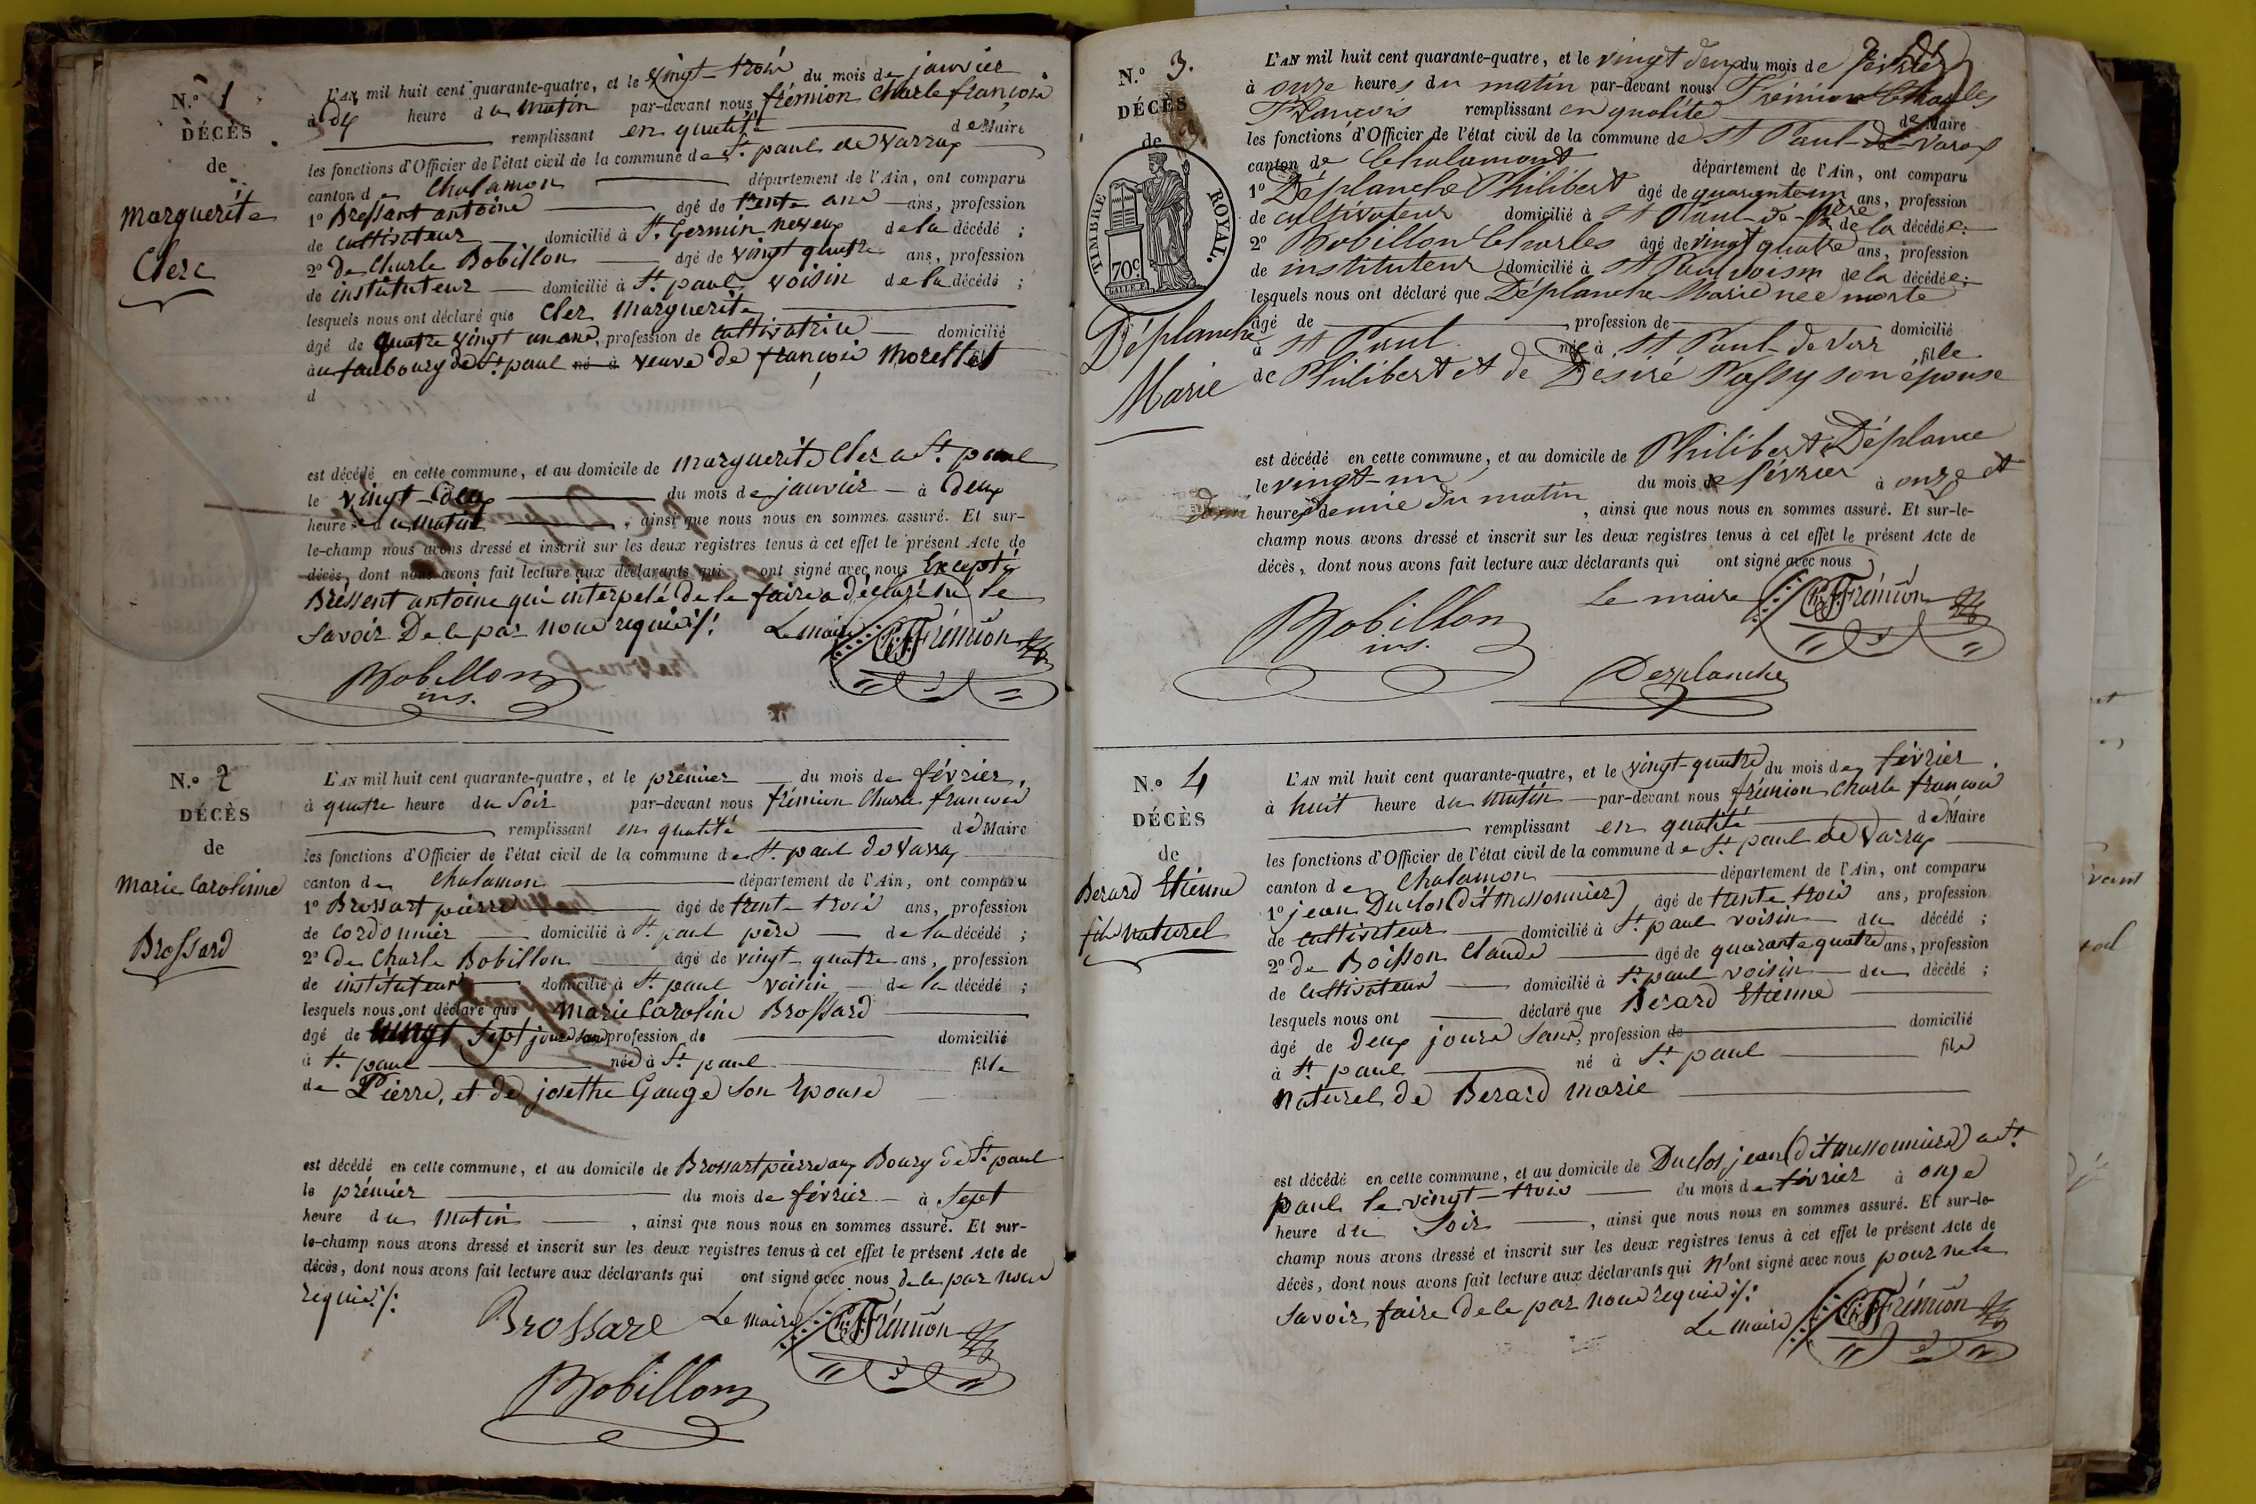 N.º 1
DÉCÈS
de
Marguerite
Clerc
L'AN mil huit cent quarante-quatre, et le vingt-trois du mois de janvier
à dix heure du matin par-devant nous frémion Charle françois
remplissant en qualité de Maire
les fonctions d'Officier de l'état civil de la commune de St. paul de Varrax
canton de Chalamon département de l'Ain, ont comparu
1º Bressant antoine âgé de trente ans ans, profession
de cultivateur domicilié à St. Germin neveux de la décédé ;
2º De Charle Bobillon âgé de vingt quatre ans, profession
de instituteur domicilié à St. paul voisin de la décédé ;
lesquels nous ont déclaré que Cler Marguerite
âgé de quatre vingt un ans, profession de cultivatrice domicilié
au faubourg de St. paul né à veuve de françois Morellet
d
est décédé en cette commune, et au domicile de Marguerite Cler a St. paul
le vingt-deux du mois de janvier à deux
heure du matin , ainsi que nous nous en sommes assuré. Et sur-
le-champ nous avons dressé et inscrit sur les deux registres tenus à cet effet le présent Acte de
décès, dont nous avons fait lecture aux déclarants qui ont signé avec nous Excepté
Bressent antoine qui interpelé de le faire a déclaré ne le
savoir De le par nous requis ./.
Le maire Ch. F. Frémion
Bobillon
ins.
N.º 2
DÉCÈS
de
Marie Carolinne
Brossard
L'AN mil huit cent quarante-quatre, et le prémier du mois de février,
à quatre heure du Soir par-devant nous frémion Charle françois
remplissant en qualité de Maire
les fonctions d'Officier de l'état civil de la commune de St. paul de Varrax
canton de Chalamon département de l'Ain, ont comparu
1º Brossart pierre âgé de trente trois ans, profession
de cordonnier domicilié à St. paul père de la décédé ;
2º De Charle Bobillon âgé de vingt quatre ans, profession
de instituteur domicilié à St. paul voisin de la décédé ;
lesquels nous ont déclaré que Marie Caroline Brossard
âgé de sept jours sans profession de domicilié
à St. paul née à St. paul fille
de Pierre, et de josethe Gauge son Epouse
est décédé en cette commune, et au domicile de Brossart pierre aux Bourg de St. paul
le prémier du mois de février à sept
heure du matin , ainsi que nous nous en sommes assuré. Et sur-
le-champ nous avons dressé et inscrit sur les deux registres tenus à cet effet le présent Acte de
décès, dont nous avons fait lecture aux déclarants qui ont signé avec nous de le par nous
requis ./.
Brossare Le maire Ch. F. Frémion
Bobillon
N.º 3.
DÉCÈS
de
TIMBRE ROYAL.
70c.
Déplanche
Marie
L'AN mil huit cent quarante-quatre, et le vingt deux du mois de février
à onze heures du matin par-devant nous Frémion Charles
François remplissant en qualité de Maire
les fonctions d'Officier de l'état civil de la commune de St Paul-de-Varax
canton de Chalamont département de l'Ain, ont comparu
1º Déplanche Philibert âgé de quarante un ans, profession
de cultivateur domicilié à St Paul-de- père de la décédée ;
2º Bobillon Charles âgé de vingt quatre ans, profession
de instituteur domicilié à St Paul voisin de la décédée ;
lesquels nous ont déclaré que Déplanche Marie née morte
âgé de profession de domicilié
à St Paul née à St Paul de Varr fille
de Philibert et de Désiré Passy son épouse
est décédé en cette commune, et au domicile de Philibert Déplance
le vingt-un du mois de février à onze et
heures demie du matin , ainsi que nous nous en sommes assuré. Et sur-le-
champ nous avons dressé et inscrit sur les deux registres tenus à cet effet le présent Acte de
décès, dont nous avons fait lecture aux déclarants qui ont signé avec nous
Le maire Ch. F. Frémion
Bobillon
ins.
Desplanche
N.º 4
DÉCÈS
de
Berard Etienne
fils naturel
L'AN mil huit cent quarante-quatre, et le vingt-quatre du mois de février
à huit heure du matin par-devant nous frémion Charle françois
remplissant en qualité de Maire
les fonctions d'Officier de l'état civil de la commune de St. paul de Varrax
canton de Chalamon département de l'Ain, ont comparu
1º jean Duclos (dit Massonnier) âgé de trente trois ans, profession
de cultivateur domicilié à St. paul voisin du décédé ;
2º de Boisson Claude âgé de quarante quatre ans, profession
de cultivateur domicilié à St. paul voisin du décédé ;
lesquels nous ont déclaré que Berard Etienne
âgé de deux jours sans profession de domicilié
à St. paul né à St. paul fils
naturel de Berard Marie
est décédé en cette commune, et au domicile de Duclos jean (dit massonnier) a St.
paul le vingt-trois du mois de février à onze
heure du Soir , ainsi que nous nous en sommes assuré. Et sur-le-
champ nous avons dressé et inscrit sur les deux registres tenus à cet effet le présent Acte de
décès, dont nous avons fait lecture aux déclarants qui n'ont signé avec nous pour ne le
savoir faire de le par nous requis ./.
Le maire Ch. F. Frémion